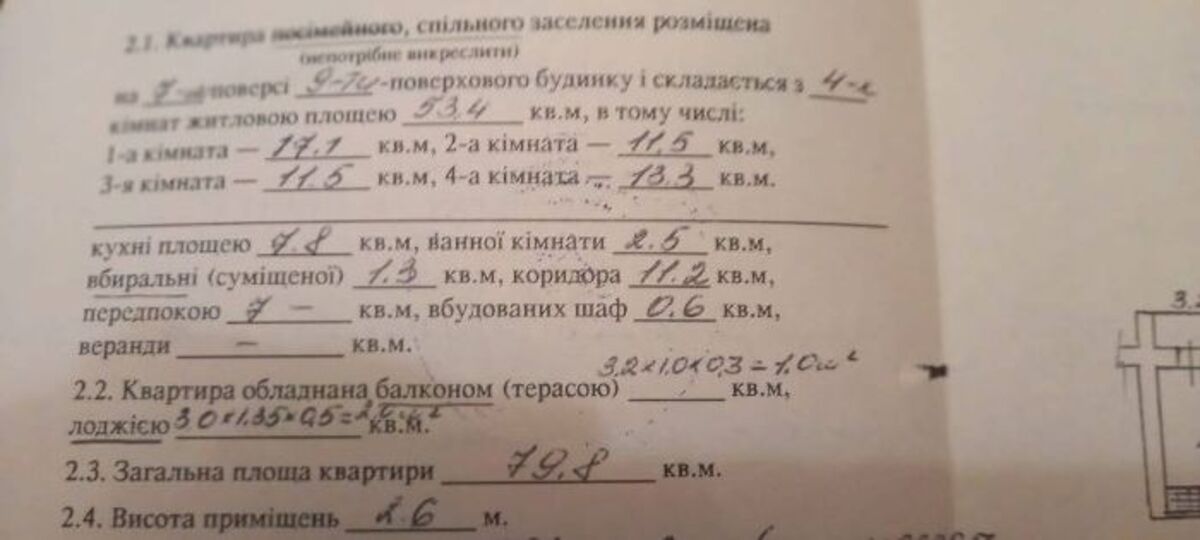 2.1. Квартира посімейного, спільного заселення розміщена
(непотрібне викреслити)
на 7-му поверсі 9-ти-поверхового будинку і складається з 4-х
кімнат житловою площею 53,4 кв.м, в тому числі:
1-а кімната — 17.1 кв.м, 2-а кімната — 11,5 кв.м,
3-я кімната — 11.5 кв.м, 4-а кімната — 13.3 кв.м.
кухні площею 7.8 кв.м, ванної кімнати 2.5 кв.м,
вбиральні (суміщеної) 1.3 кв.м, коридора 11.2 кв.м,
передпокою 7 — кв.м, вбудованих шаф 0.6 кв.м,
веранди — кв.м.
3,2×1,0×0,3=1,0м²
2.2. Квартира обладнана балконом (терасою) кв.м,
лоджією 3 0×1.35×0,5=2,0м² кв.м.
2.3. Загальна площа квартири 79.8 кв.м.
2.4. Висота приміщень 2.6 м.